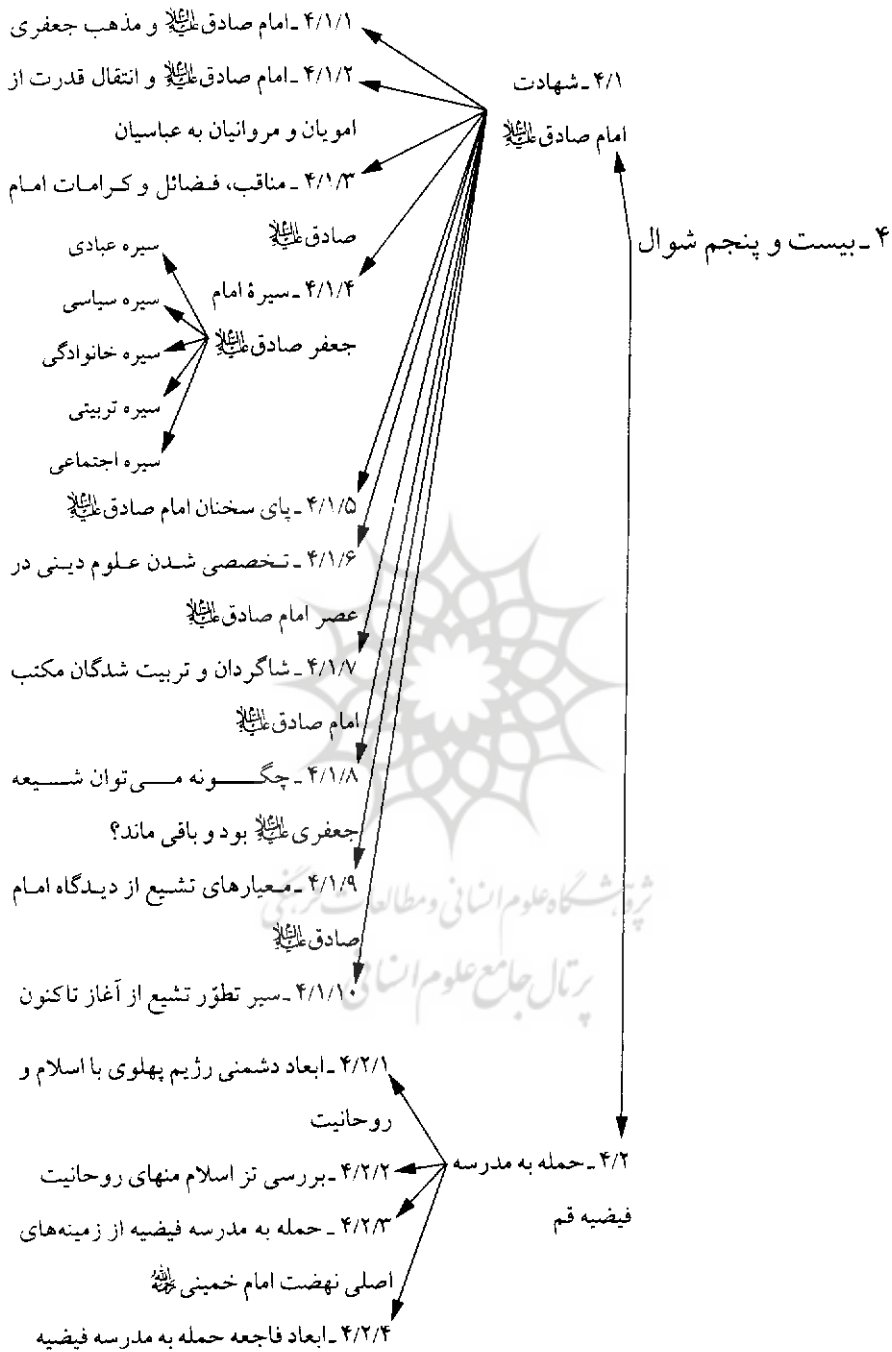 ۴ ـ بیست و پنجم شوال
۴/۱ ـ شهادت
امام صادق علیه‌السلام
۴/۱/۱ ـ امام صادق علیه‌السلام و مذهب جعفری
۴/۱/۲ ـ امام صادق علیه‌السلام و انتقال قدرت از
امویان و مروانیان به عباسیان
۴/۱/۳ ـ مناقب، فضائل و کرامات امام
صادق علیه‌السلام
۴/۱/۴ ـ سیرهٔ امام
جعفر صادق علیه‌السلام
سیره عبادی
سیره سیاسی
سیره خانوادگی
سیره تربیتی
سیره اجتماعی
۴/۱/۵ ـ پای سخنان امام صادق علیه‌السلام
۴/۱/۶ ـ تخصصی شدن علوم دینی در
عصر امام صادق علیه‌السلام
۴/۱/۷ ـ شاگردان و تربیت شدگان مکتب
امام صادق علیه‌السلام
۴/۱/۸ ـ چگونه می‌توان شیعه
جعفری علیه‌السلام بود و باقی ماند؟
۴/۱/۹ ـ معیارهای تشیع از دیدگاه امام
صادق علیه‌السلام
۴/۱/۱۰ ـ سیر تطوّر تشیع از آغاز تاکنون
۴/۲ ـ حمله به مدرسه
فیضیه قم
۴/۲/۱ ـ ابعاد دشمنی رژیم پهلوی با اسلام و
روحانیت
۴/۲/۲ ـ بررسی تز اسلام منهای روحانیت
۴/۲/۳ ـ حمله به مدرسه فیضیه از زمینه‌های
اصلی نهضت امام خمینی رحمه‌الله
۴/۲/۴ ـ ابعاد فاجعه حمله به مدرسه فیضیه
پژوهشگاه علوم انسانی و مطالعات فرهنگی
پرتال جامع علوم انسانی